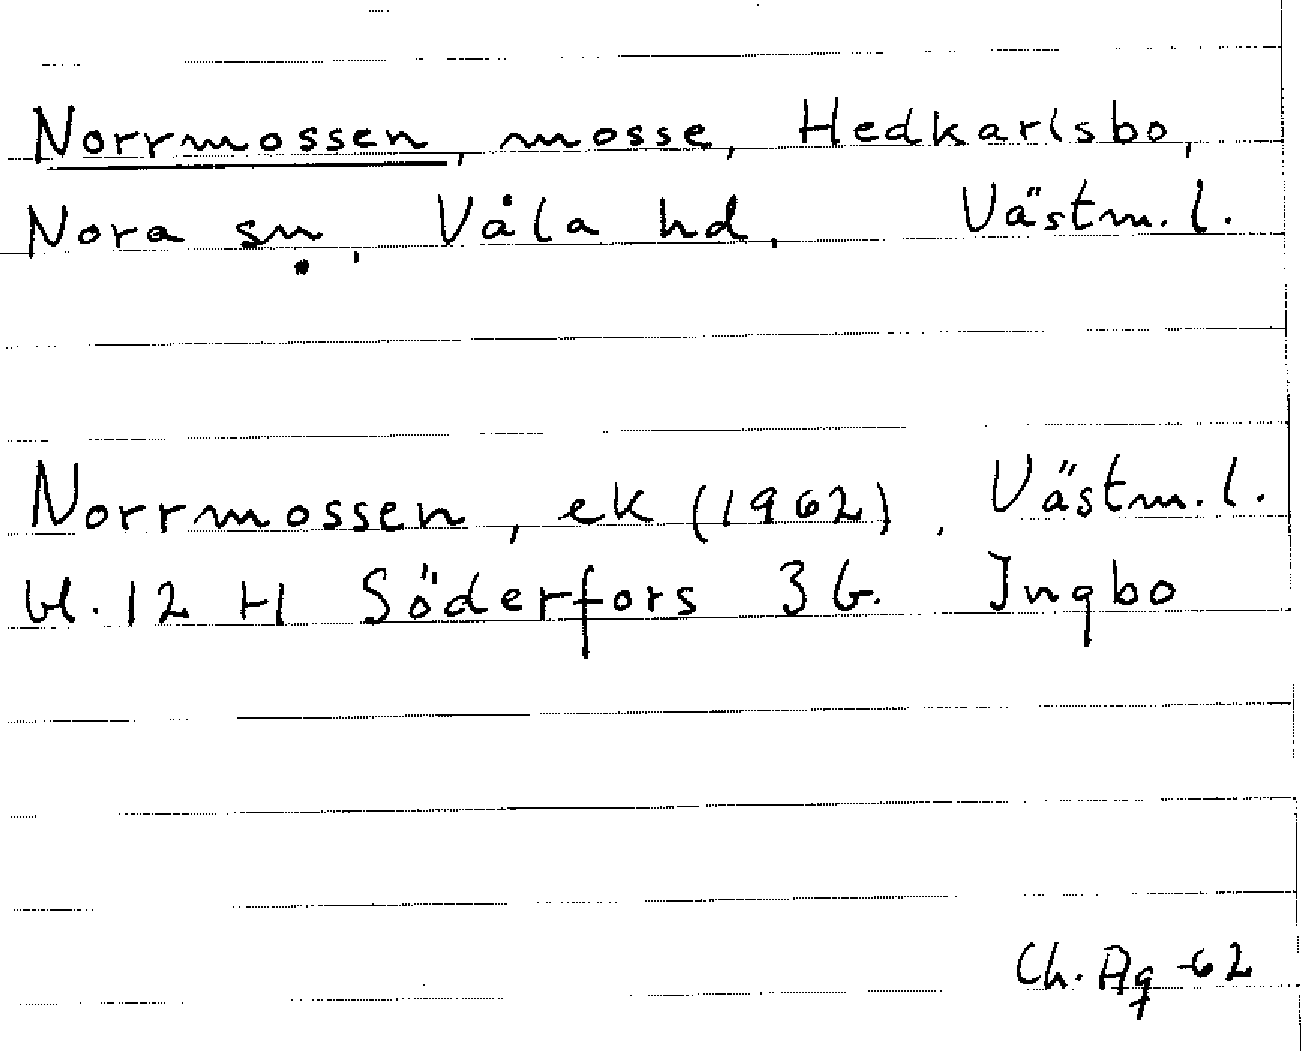 Norrmossen, mosse, Hedkarlsbo,
Nora sn, Våla hd. Västm. l.
Norrmossen, ek (1962). Västm. l.
bl. 12 H Söderfors 3 b. Ingbo
Ch. Ag -62